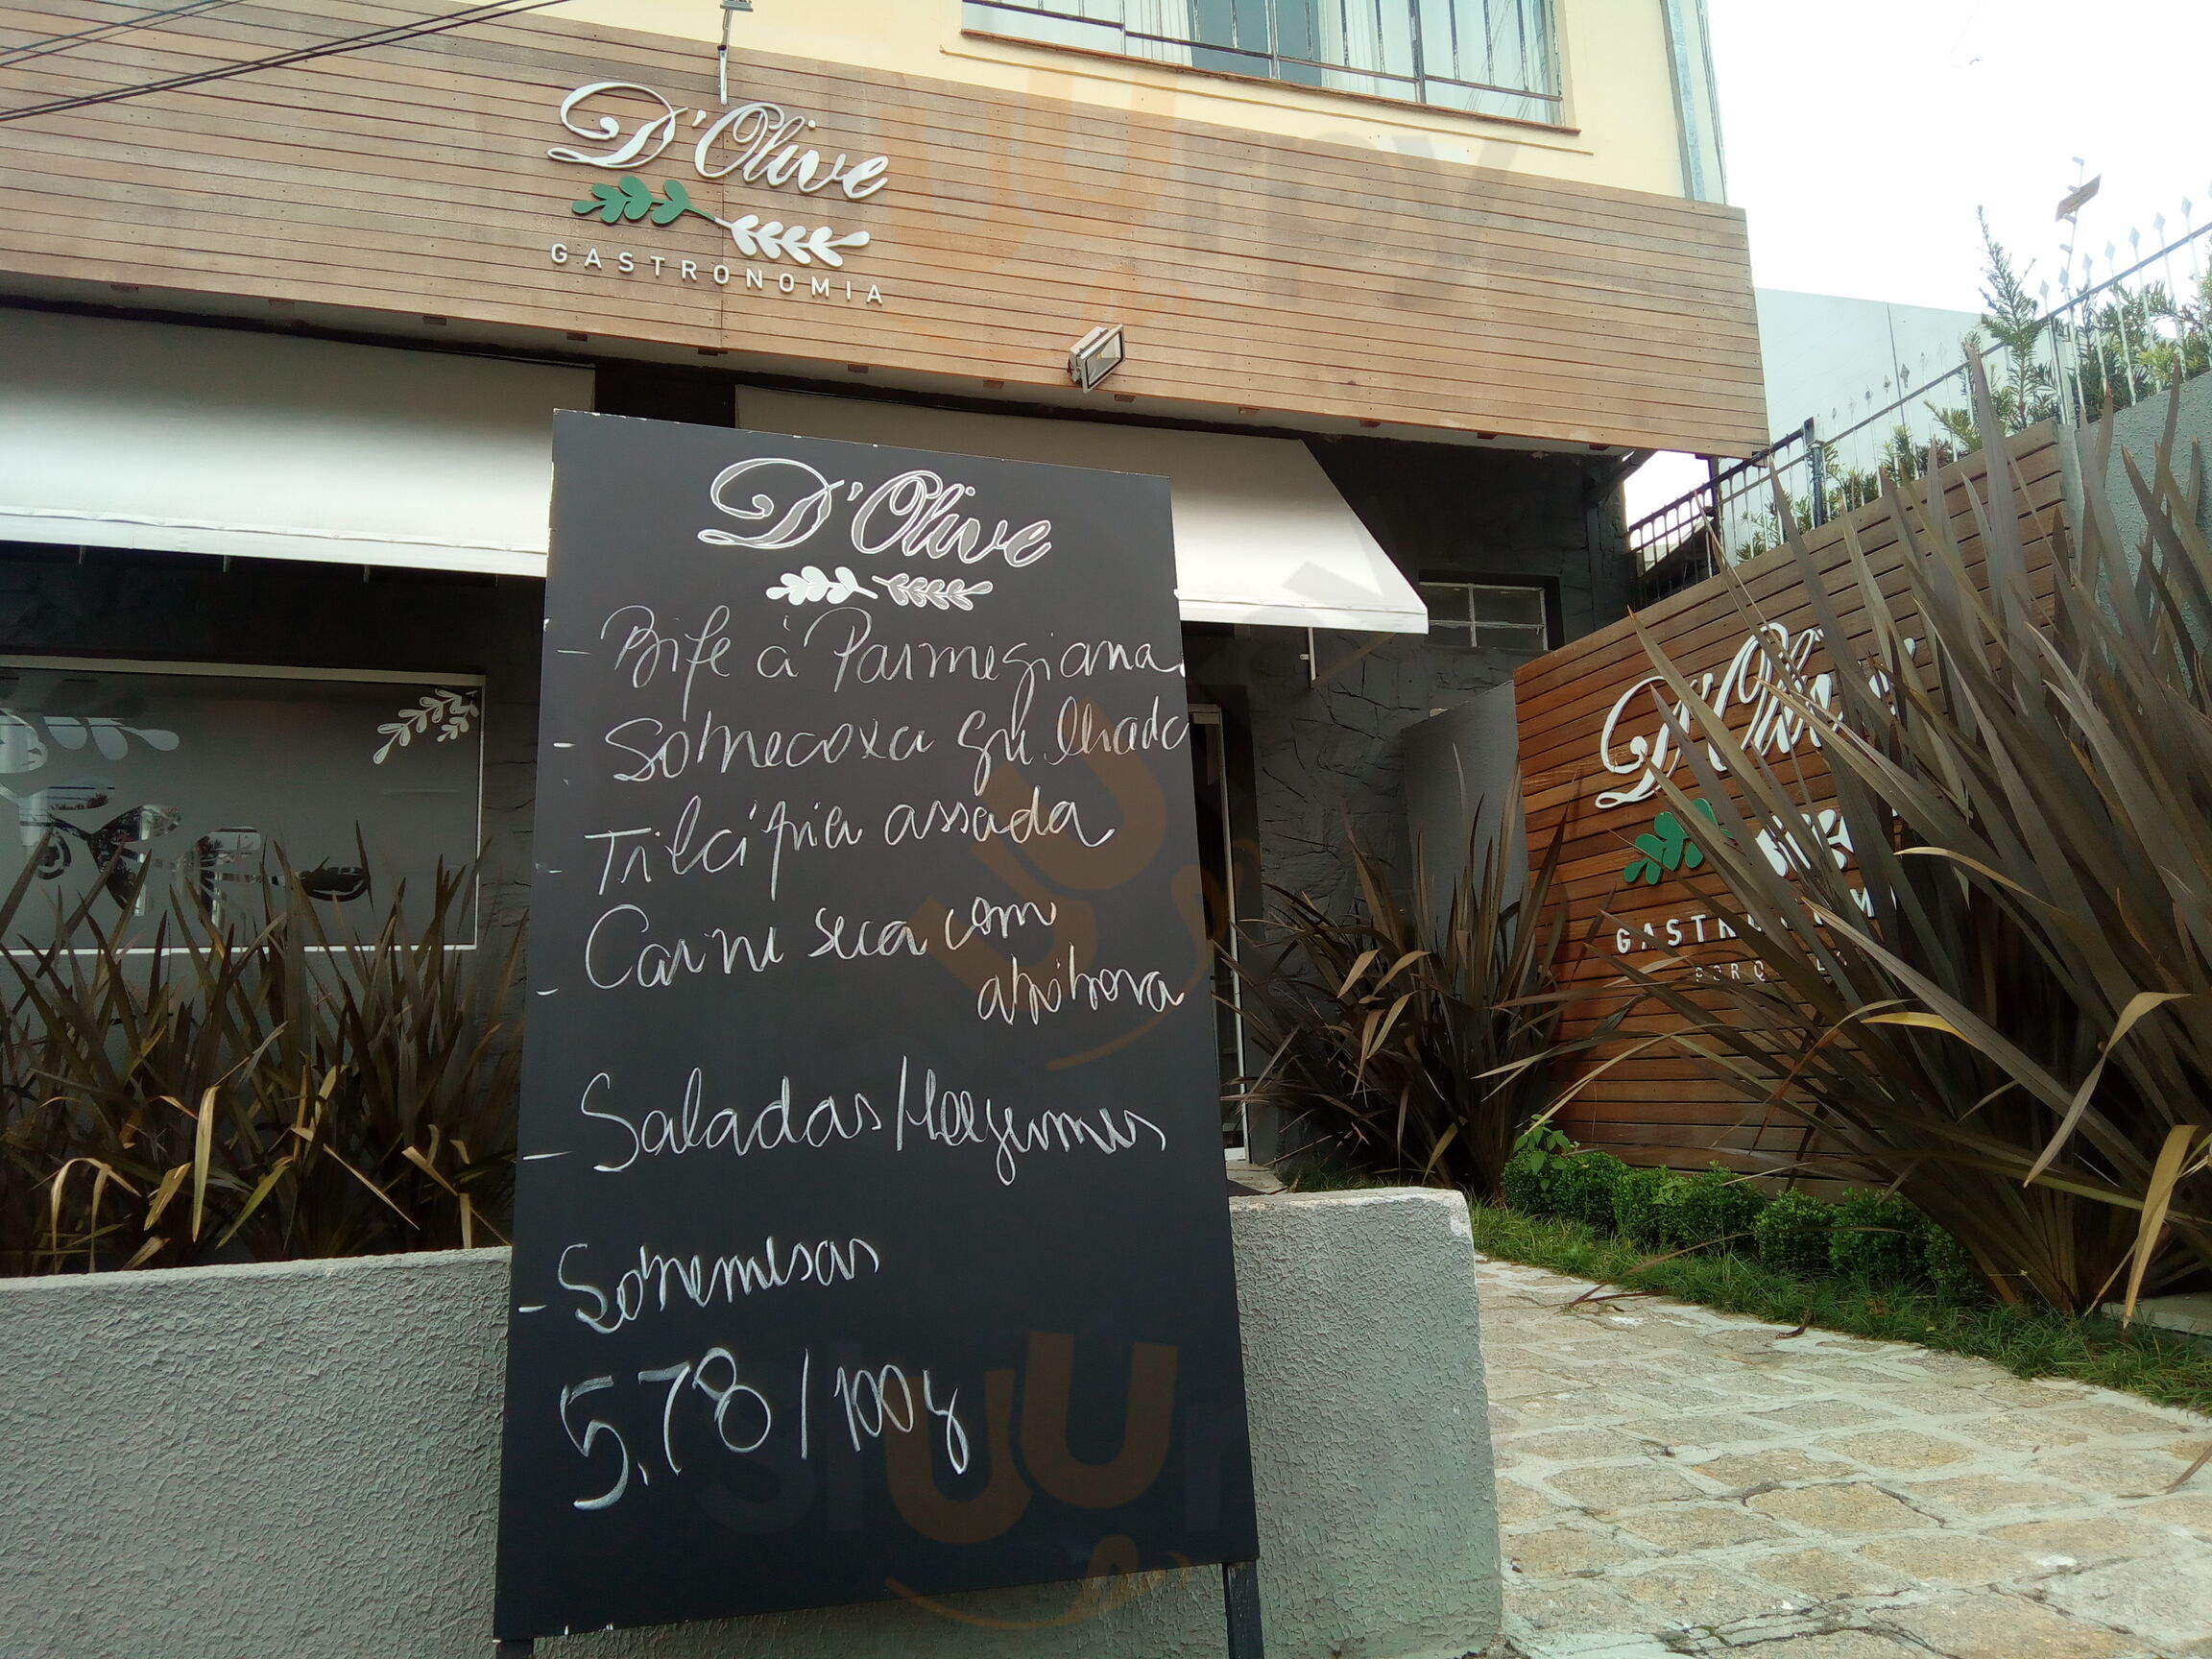 D'Olive
GASTRONOMIA
D'Olive
- Bife à Parmegiana
- Sobrecoxa grelhada
- Tilápia assada
- Carne seca com
abóbora
- Saladas/Legumes
- Sobremesas
5,78/100g
D'Olive